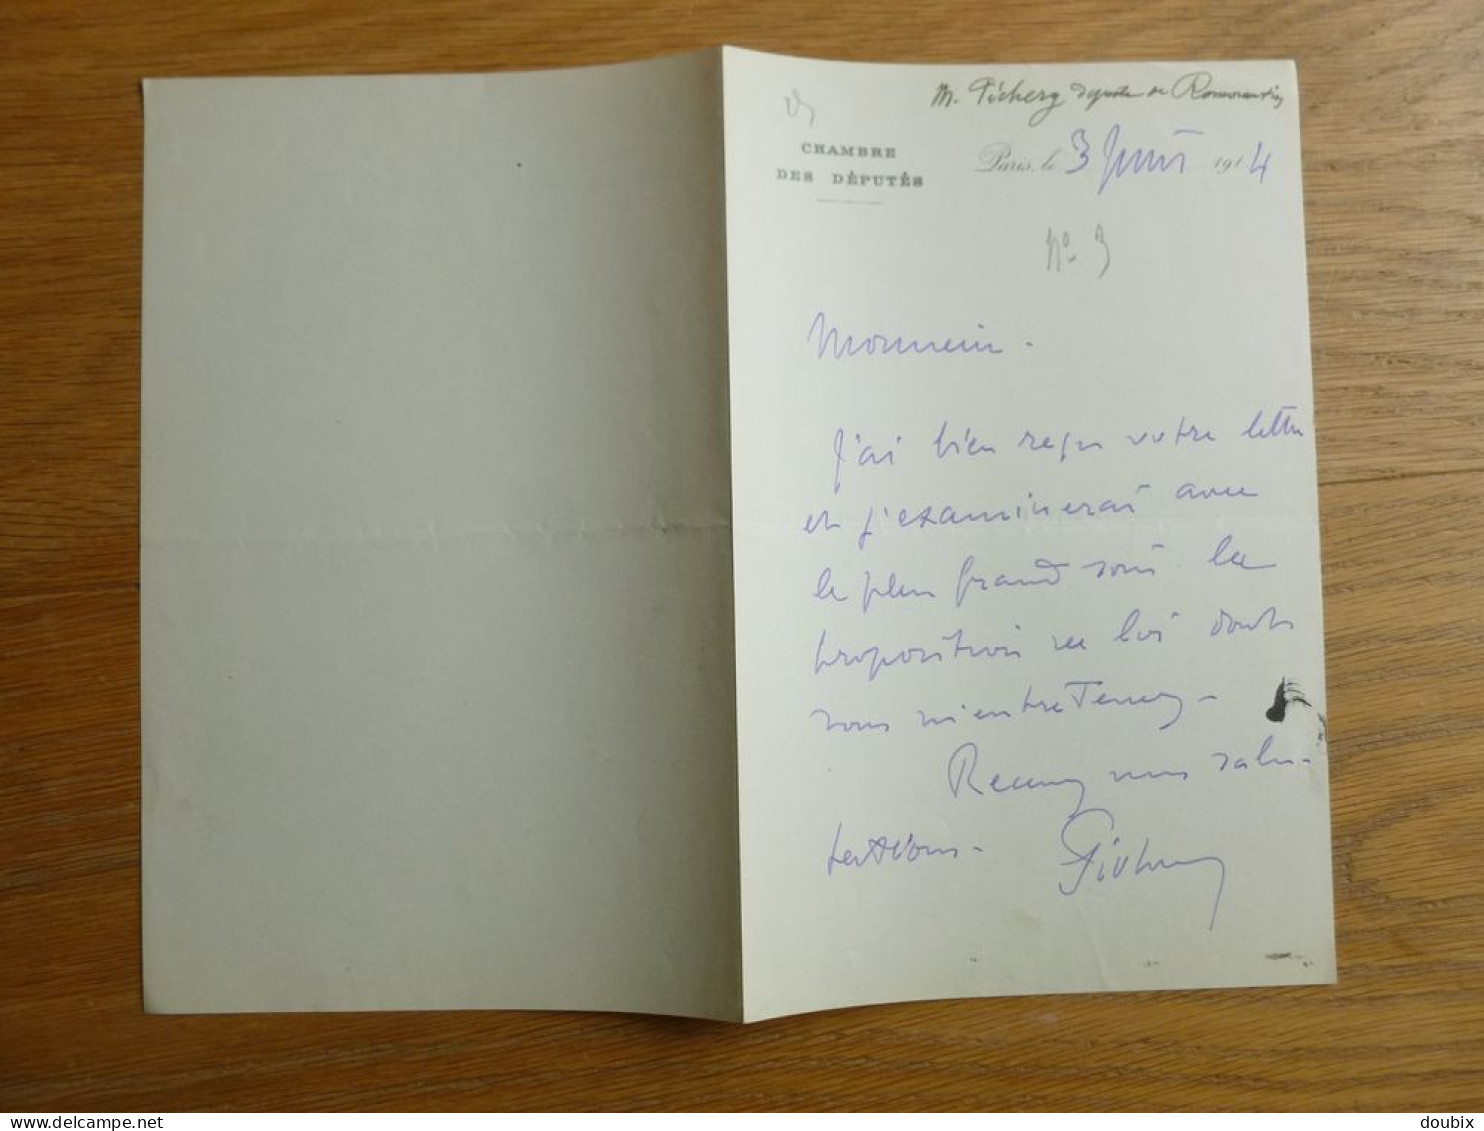 M. Pichery député de Romorantin
CHAMBRE
DES DÉPUTÉS
Paris, le 3 Juin 1914
No 3
Monsieur.
J'ai bien reçu votre lettre
et j'examinerai avec
le plus grand soin la
proposition de loi dont
vous m'entretenez.
Recevez mes salu-
tations.
Pichery
delcampe.net
doubix